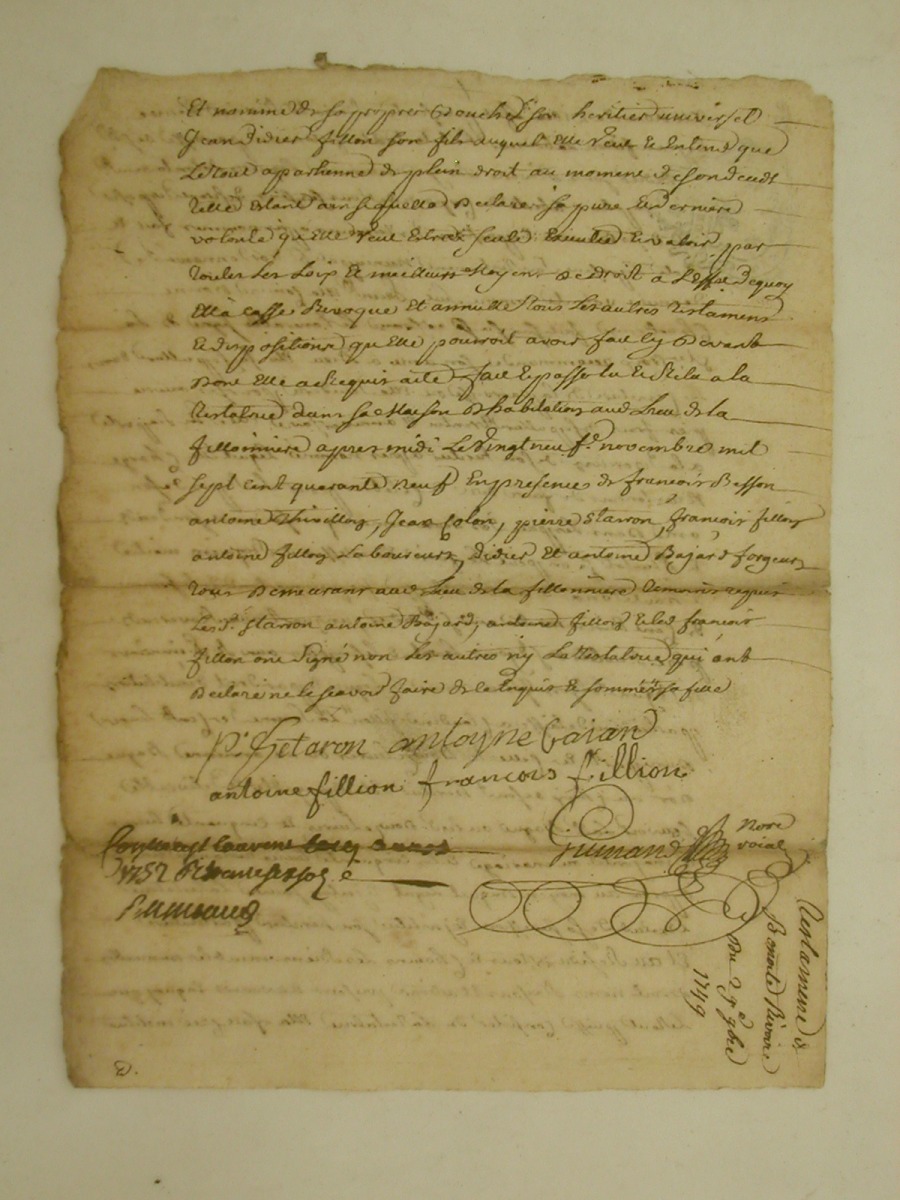 Et nomme de sa propre bouche son heritier universel
Jean didier fillon son fils auquel Elle Veut Et Entend que
Le tout apartienne de plein droit au moment de son decedt
telle Estant ainsi que dit Declare sa pure Et derniere
volonté qu'elle Veut Estre seule Executée Et valoir par
toutes les Loix Et meilleurs Moyens de droit à L'effet dequoy
Ella casse Revoque Et annulle tous les autres testaments
Et dispositions qu'elle pourroit avoir fait cy Devant
Dont Elle a Requis acte fait Et passé lu Et Relu a la
testatrice dans sa Maison D'habitation aud Lieu de la
fillionniere apres midi Le Vingt neuf.e novembre mil
sept cent quarante neuf En presence de francois Besson
antoine, Jean Colon, pierre Starron, francois fillion
antoine fillion Laboureurs, didier Et antoine Bajard forgeurs
tous Demeurants aud Lieu de la fillonniere temoins requis
Les d. Starron antoine Bajard, antoine fillion Et led francois
fillon ont Signé non Les autres ny La testatrice qui ont
Declaré ne le scavoir faire de ce Enquis Et sommés
P. Hetaron antoyne Baiard
antoine fillion francois fillion
Guimand Nore
roial
1757
Guimand
Testament de
Benoite Rivoire
Du 29e 9bre
1749